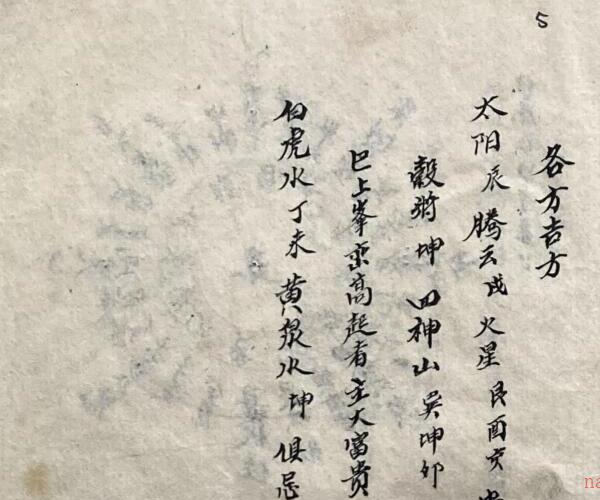 5
各方吉方
太阳辰 腾云戌 火星艮酉亥
毂将坤 四神山 巽坤卯
巴上峯峦高起者主大富贵
白虎水丁未 黄泉水坤 俱忌
na